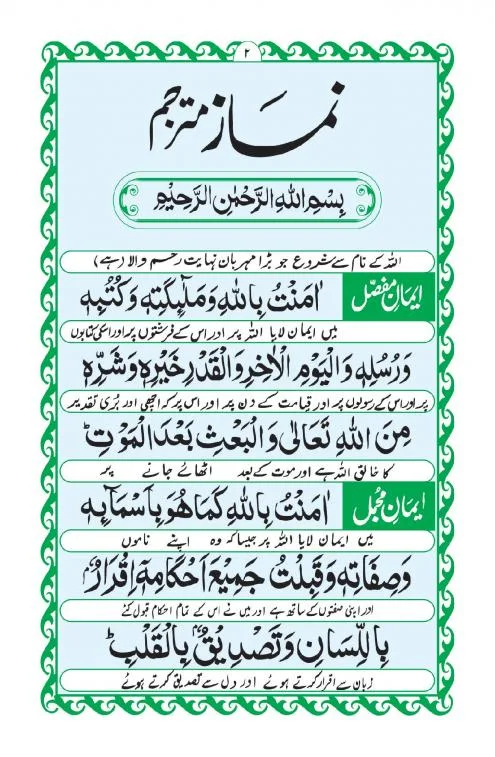 ۲
نماز مترجم
بِسْمِ اللهِ الرَّحْمٰنِ الرَّحِيْمِ
اللہ کے نام سے شروع جو بڑا مہربان نہایت رحم والا (ہے)
ایمان مفصّل
اٰمَنْتُ بِاللهِ وَمَلٰٓئِكَتِهٖ وَكُتُبِهٖ
میں ایمان لایا اللہ پر اور اس کے فرشتوں پر اور اسکی کتابوں
وَرُسُلِهٖ وَالْيَوْمِ الْاٰخِرِ وَالْقَدْرِ خَيْرِهٖ وَشَرِّهٖ
پر اور اس کے رسولوں پر اور قیامت کے دن پر اور اس پر کہ اچھی اور بُری تقدیر
مِنَ اللهِ تَعَالٰى وَالْبَعْثِ بَعْدَ الْمَوْتِ ؕ
کا خالق اللہ ہے اور موت کے بعد اٹھائے جانے پر
ایمان مجمل
اٰمَنْتُ بِاللهِ كَمَا هُوَ بِاَسْمَآئِهٖ
میں ایمان لایا اللہ پر جیسا کہ وہ اپنے ناموں
وَصِفَاتِهٖ وَقَبِلْتُ جَمِيْعَ اَحْكَامِهٖٓ اِقْرَارٌۢ
اور اپنی صفتوں کے ساتھ ہے اور میں نے اس کے تمام احکام قبول کئے
بِاللِّسَانِ وَتَصْدِيْقٌۢ بِالْقَلْبِ ؕ
زبان سے اقرار کرتے ہوئے اور دل سے تصدیق کرتے ہوئے